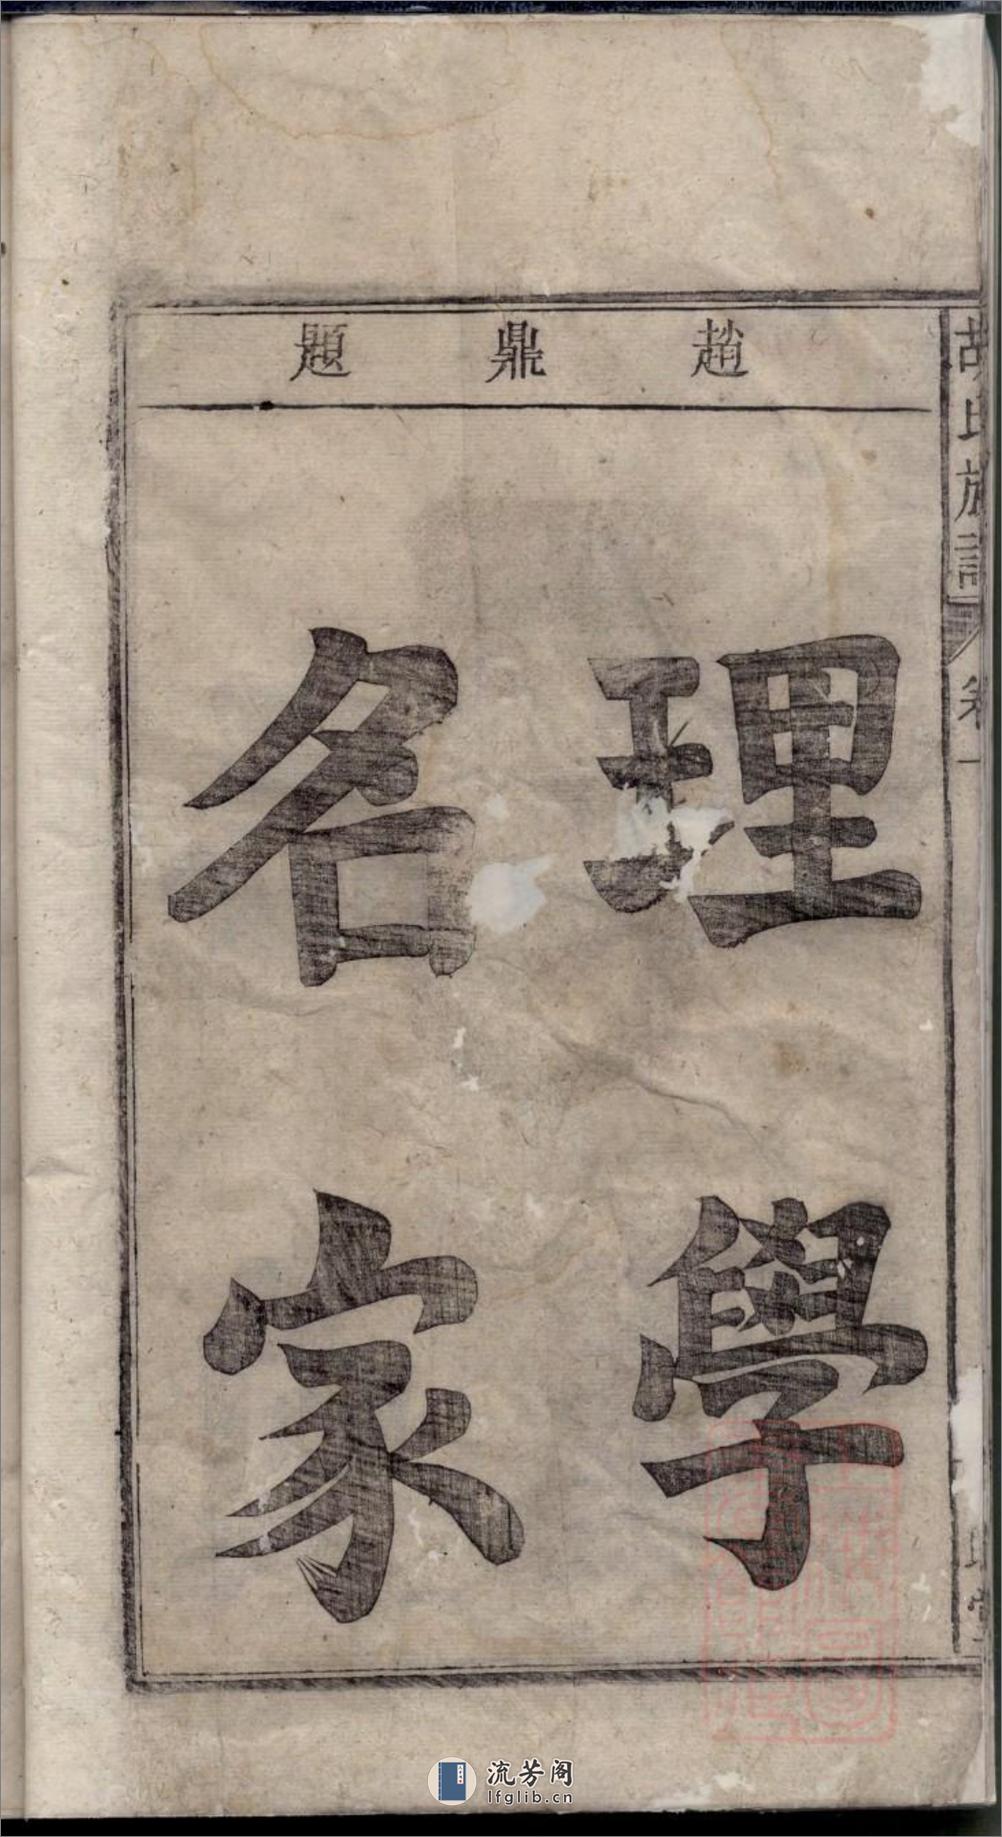 胡氏族譜
卷一
趙鼎題
理學
名家
流芳阁
lfglib.cn